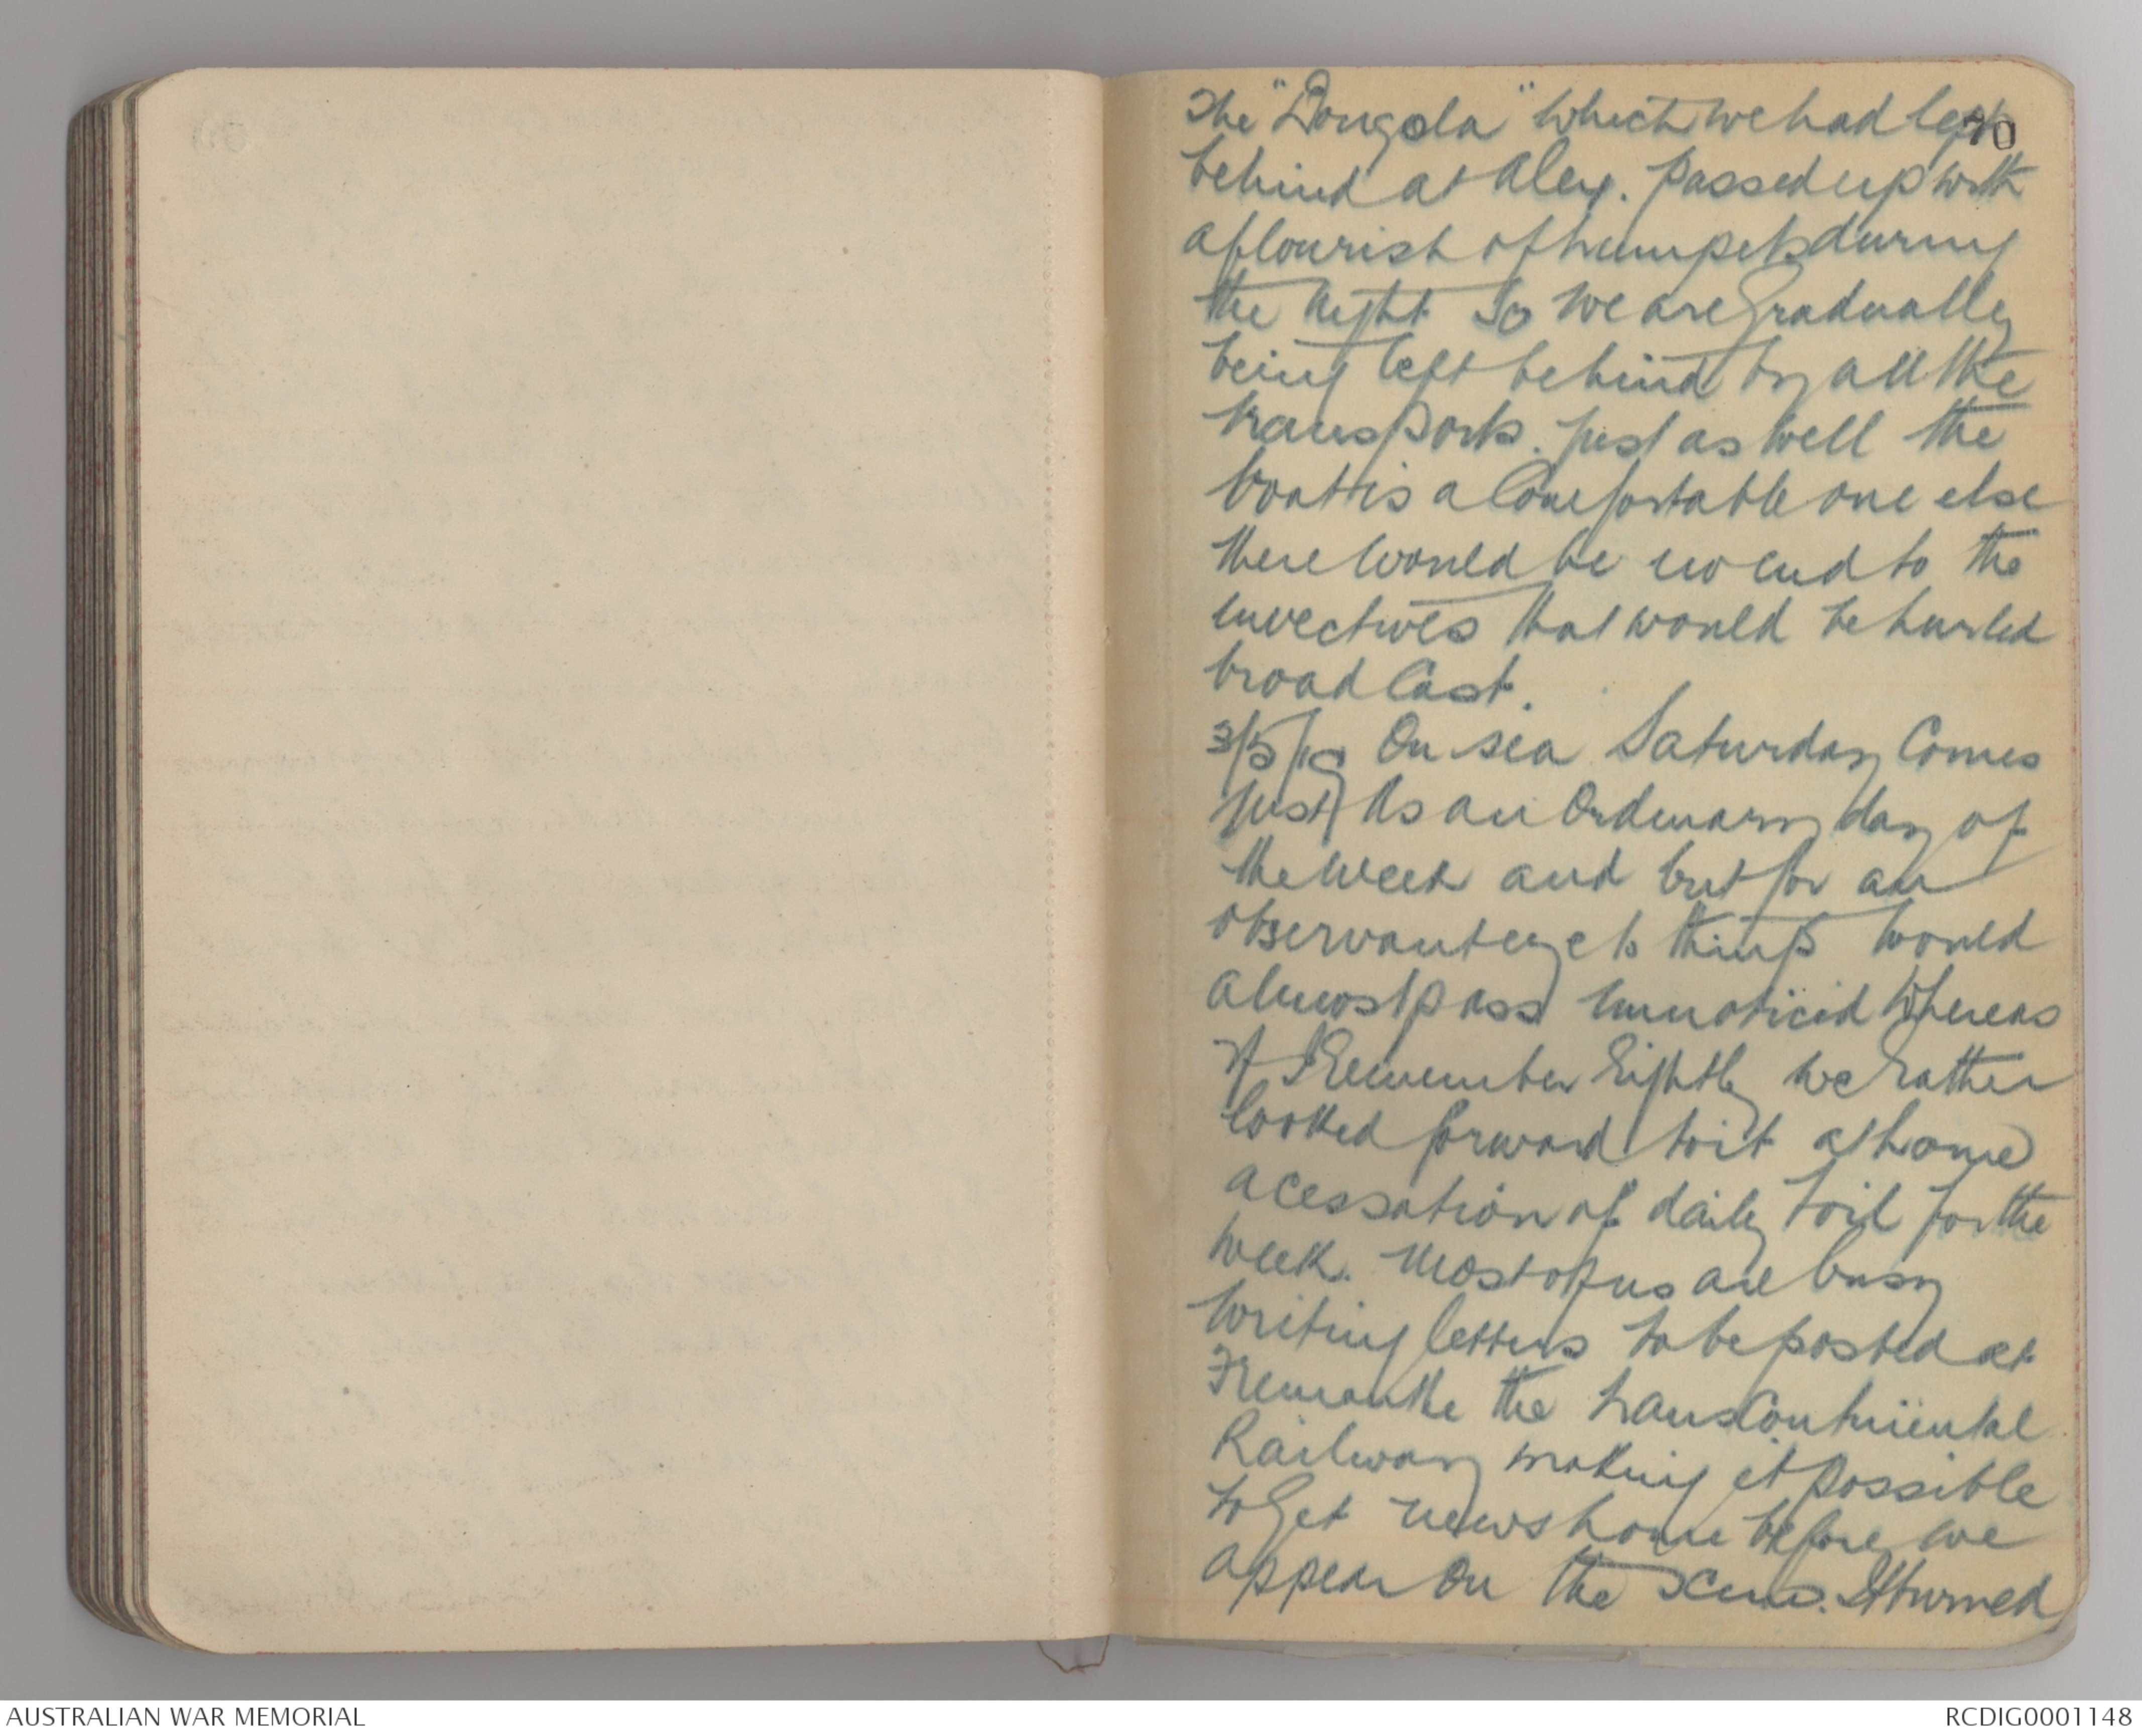 70
The "Dongola" which we had left
behind at Alex. passed up with
a flourish of trumpets during
the night so we are gradually
being left behind by all the
transports. Just as well the
boat is a Comfortable one else
there would be no end to the
invectives that would be hurled
broad Cast.
3/5/19 On sea Saturday Comes
just as an Ordinary day of
the week and but for an
observant eye to things would
almost pass unnoticed whereas
if I Remember Rightly we Rather
looked forward to it at home
a cessation of daily toil for the
week. Most of us are busy
writing letters to be posted at
Fremantle the transContinental
Railway making it possible
to Get news home before we
appear on the scene. It turned
AUSTRALIAN WAR MEMORIAL
RCDIG0001148